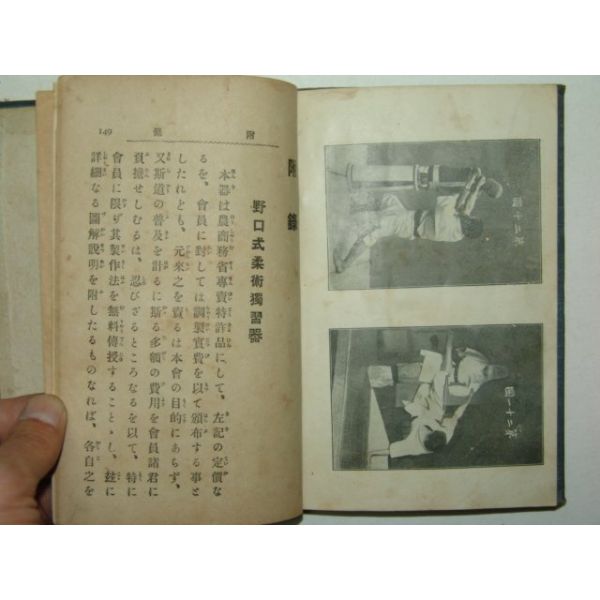 附錄
149
附錄
野口式柔術獨習器
本器は農商務省專賣特許品にして、左記の定價な
るを、會員に對しては調製實費を以て頒布する事と
したれども、元來之を賣るは本會の目的にあらず、
又斯道の普及を計るに斯る多額の費用を會員諸君に
負擔せしむるは、忍びざるところなるを以て、特に
會員に限り其製作法を無料傳授することゝし、玆に
詳細なる圖解說明を附したるものなれば、各自之を
第二十圖
第二十一圖